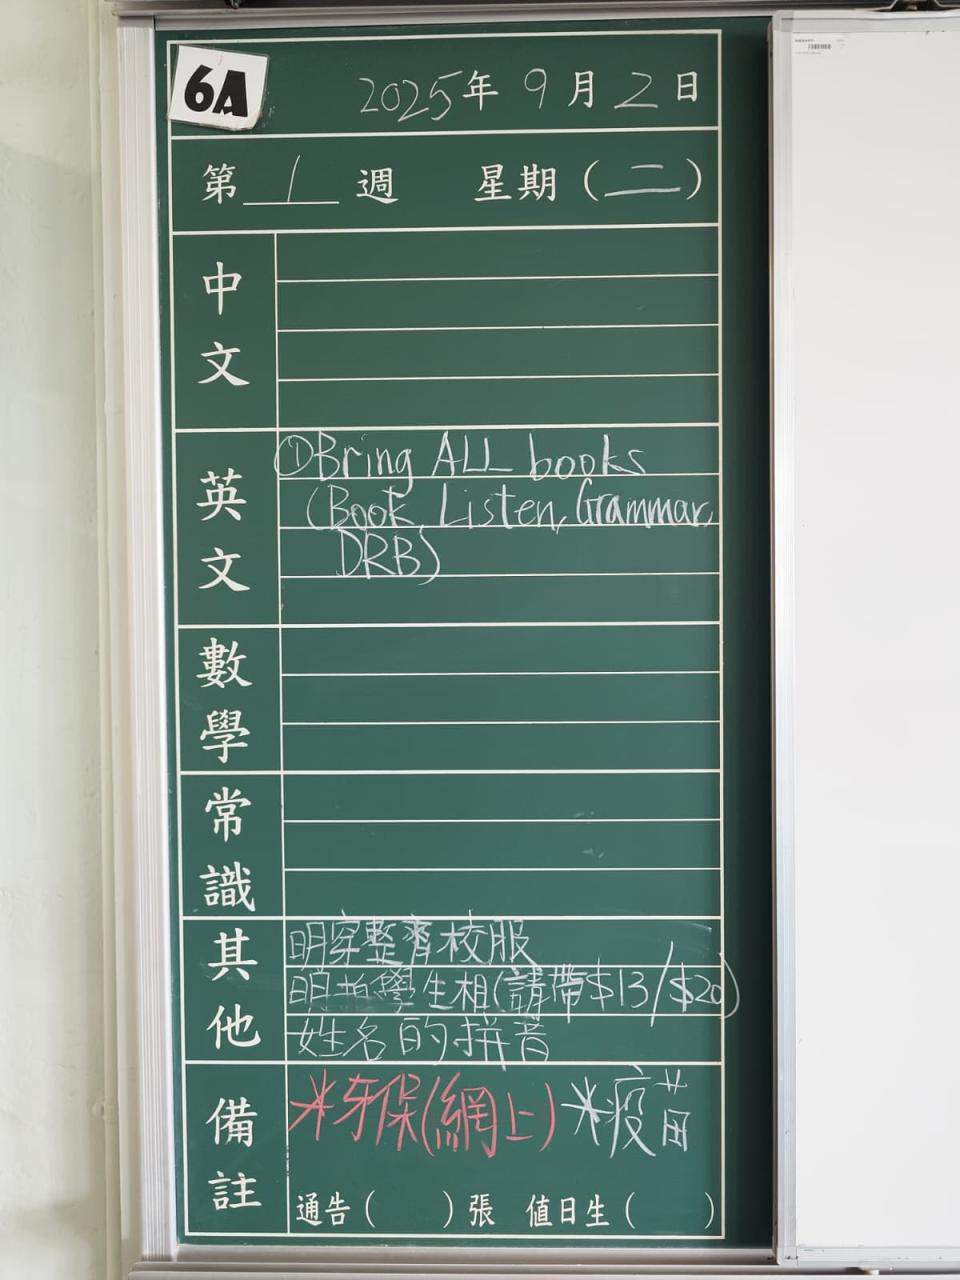 6A
2025年 9月 2日
第 1 週 星期(二)
中文
英文
①Bring ALL books
(Book, Listen, Grammar,
DRB)
數學
常識
其他
明穿整齊校服
明拍學生相(請帶$13/$20)
姓名的拼音
備註
*牙保(網上) *疫苗
通告( )張 值日生( )